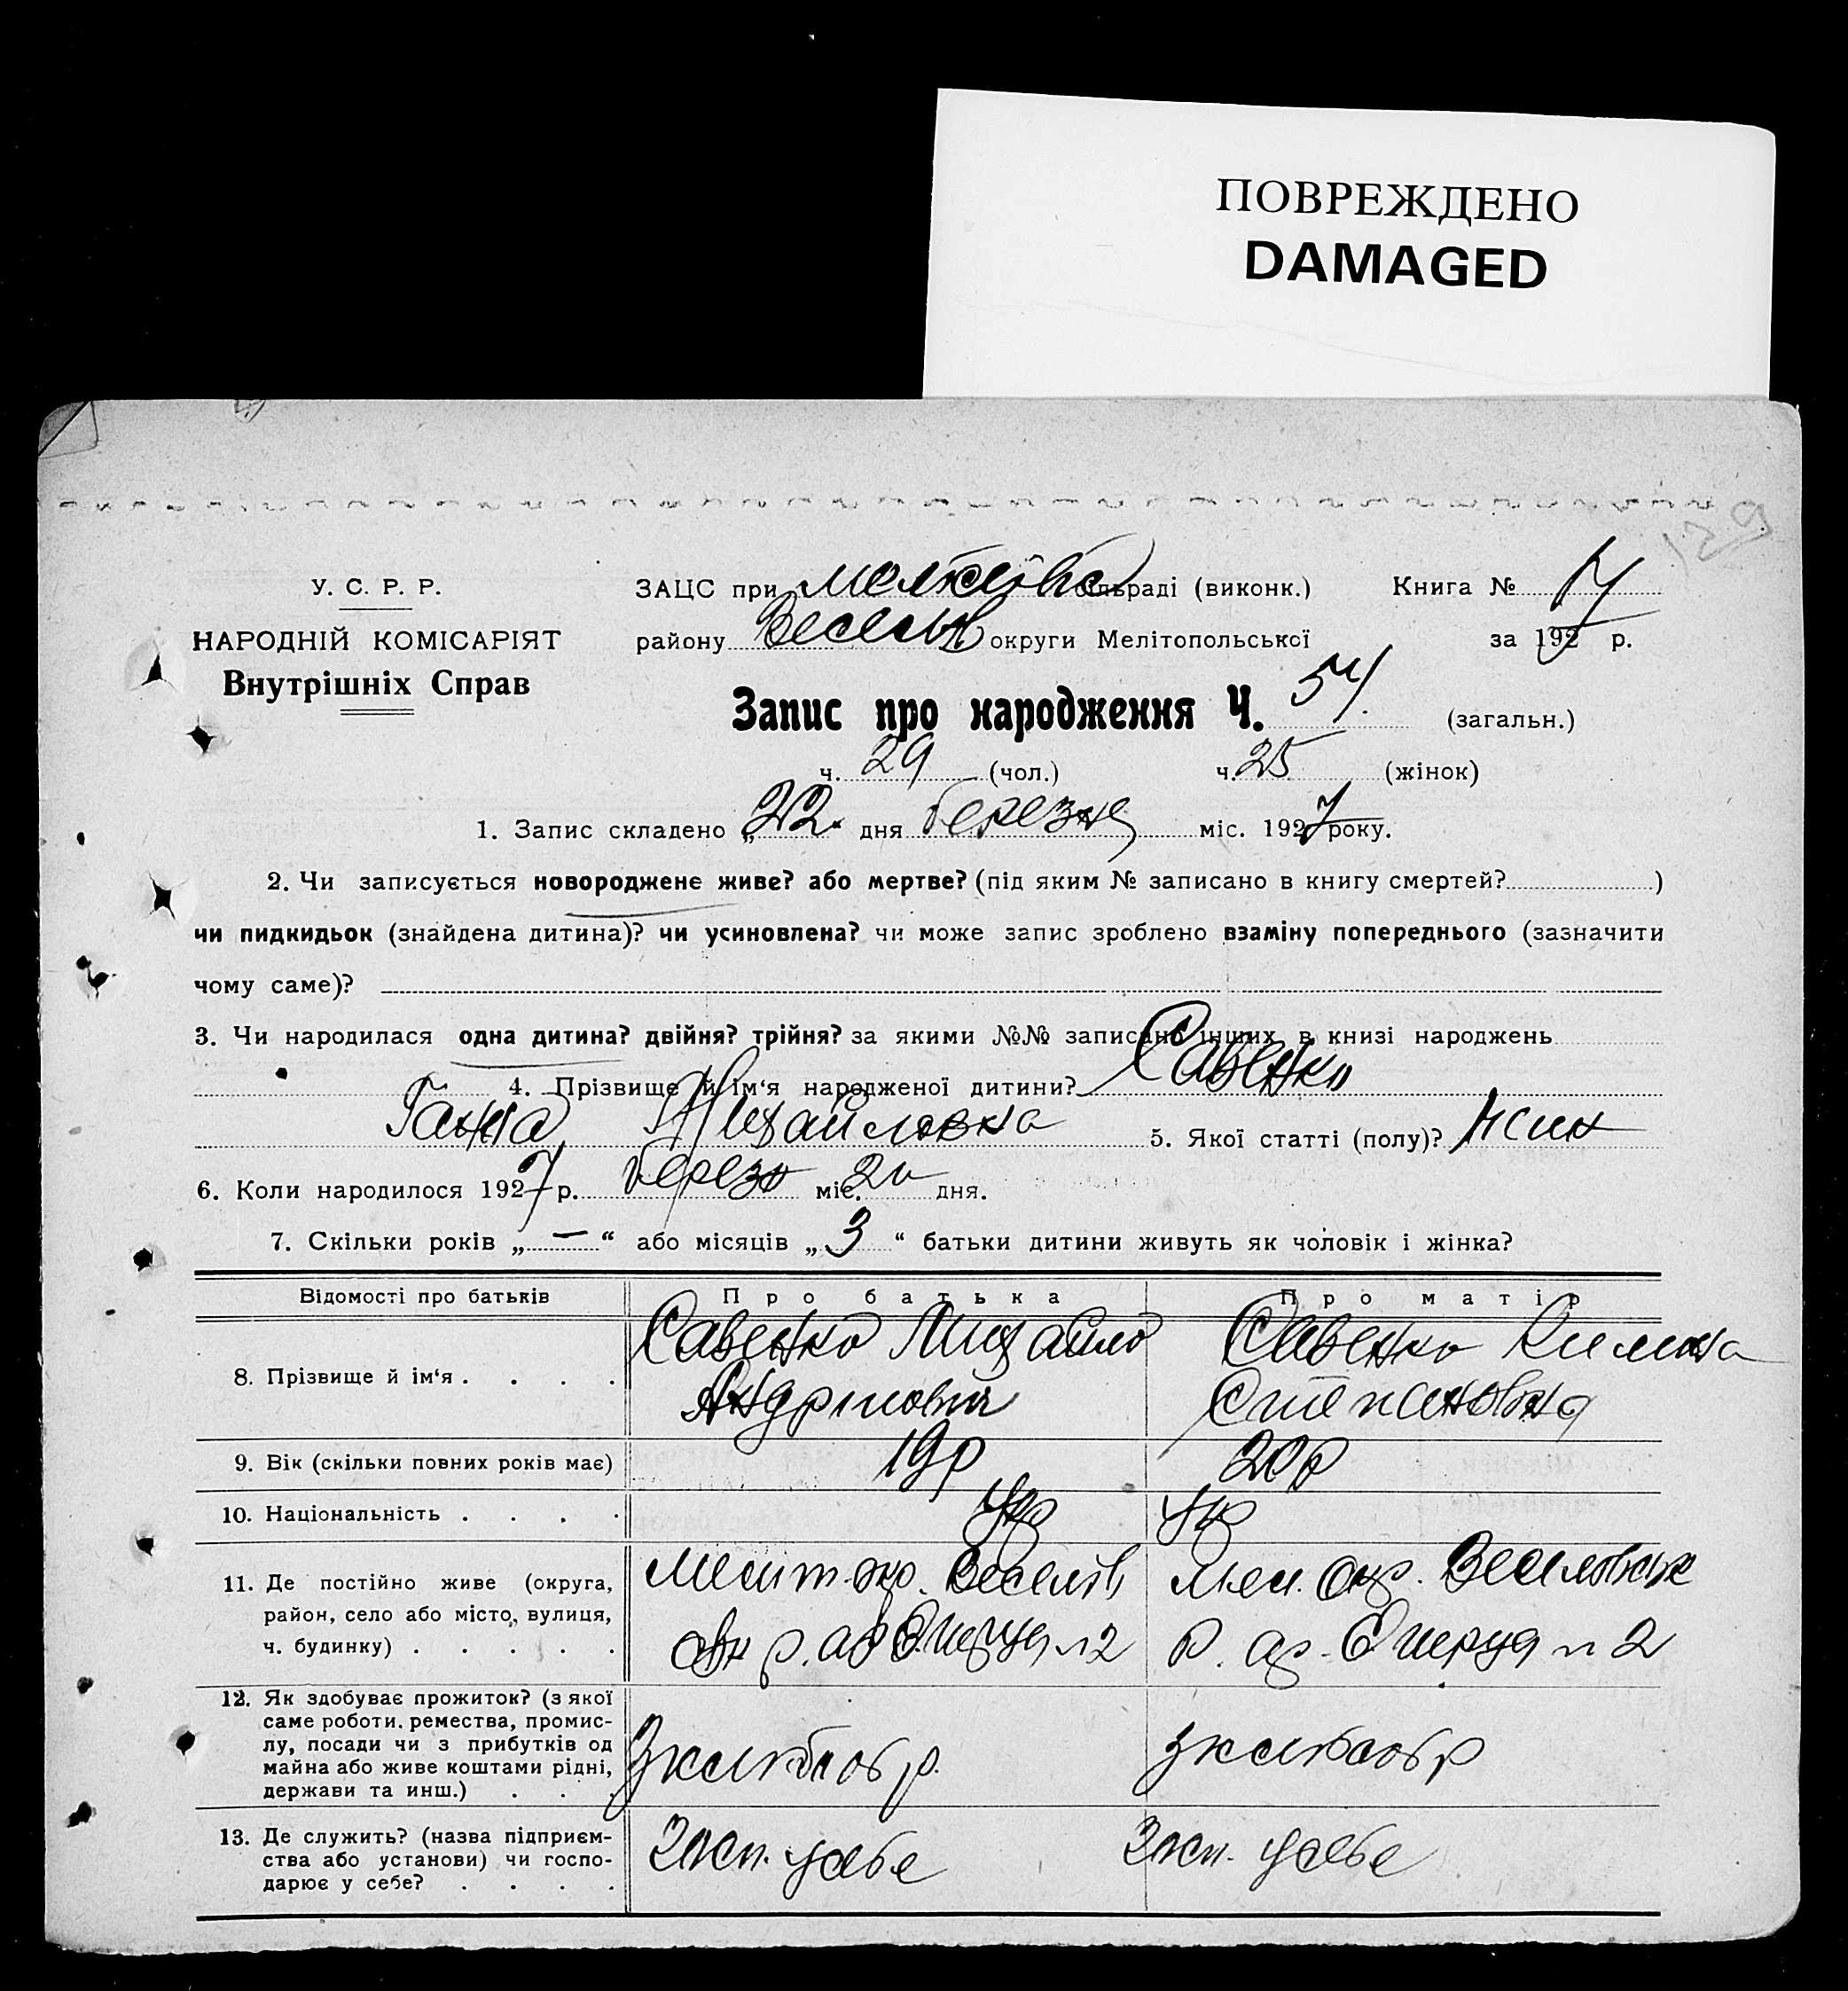 ПОВРЕЖДЕНО
DAMAGED
У. С. Р. Р.
НАРОДНІЙ КОМІСАРІЯТ
Внутрішніх Справ
ЗАЦС при сільраді (виконк.)
Книга № 7
району Весел округи Мелітопольської
за 1927 р.
Запис про народження Ч. 54 (загальн.)
ч. 29 (чол.) ч. 25 (жінок)
1. Запис складено „22“ дня березня міс. 1927 року.
2. Чи записується новороджене живе? або мертве? (під яким № записано в книгу смертей? )
чи пидкидьок (знайдена дитина)? чи усиновлена? чи може запис зроблено взаміну попереднього (зазначити
чому саме)?
3. Чи народилася одна дитина? двійня? трійня? за якими №№ записано інших в книзі народжень
4. Прізвище й ім‘я народженої дитини? Савенко
Ганна Михайловна 5. Якої статті (полу)? жін
6. Коли народилося 1927 р. березн міс. 20 дня.
7. Скільки років „—“ або місяців „3“ батьки дитини живуть як чоловік і жінка?
Відомості про батьків Про батька Про матір
8. Прізвище й ім‘я . . . . Савенко Михайло Савенко
Андріiович Степановна
9. Вік (скільки повних років має) 19 р 20 р
10. Національність . . . . Укр Укр
11. Де постійно живе (округа,
район, село або місто, вулиця,
ч. будинку) . . . . .
Мелит. окр. Веселів Мел. окр. Веселовськ
р. №2 р. №2
12. Як здобуває прожиток? (з якої
саме роботи, ремества, промис-
лу, посади чи з прибутків од
майна або живе коштами рідні,
держави та инш.) . . .
з хліборобр. з хліборобр
13. Де служить? (назва підприєм-
ства або установи) чи госпо-
дарює у себе? . . . .
у себе у себе